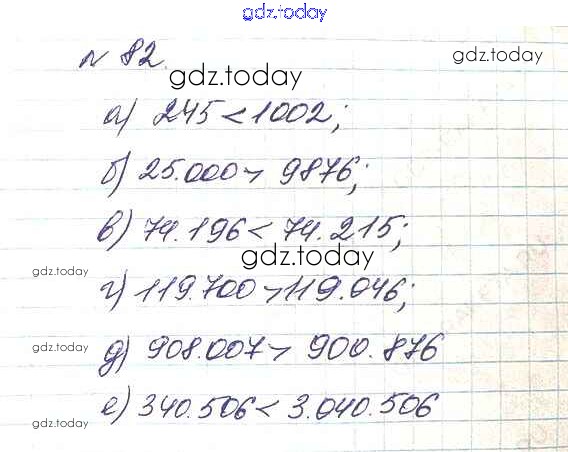 gdz.today
№ 82.
gdz.today
gdz.today
а) 245 < 1002;
б) 25.000 > 9876;
в) 74.196 < 74.215;
gdz.today
gdz.today
г) 119.700 > 119.046;
д) 908.007 > 900.876
gdz.today
gdz.today
е) 340.506 < 3.040.506
gdz.today
gdz.today